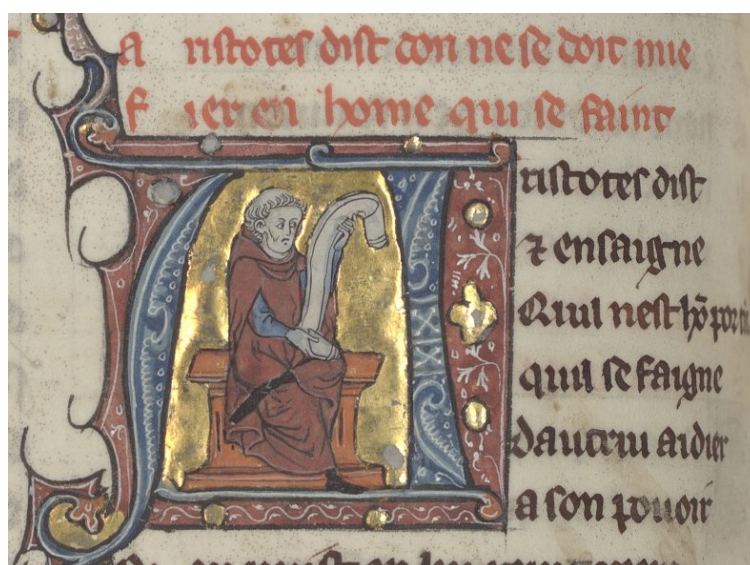 a ristotes dist con ne se doit mie
f ier en home qui se faint
ristotes dist
⁊ ensaigne
Quil nest hō por
quil se faigne
dautrui aidier
a son pouoir